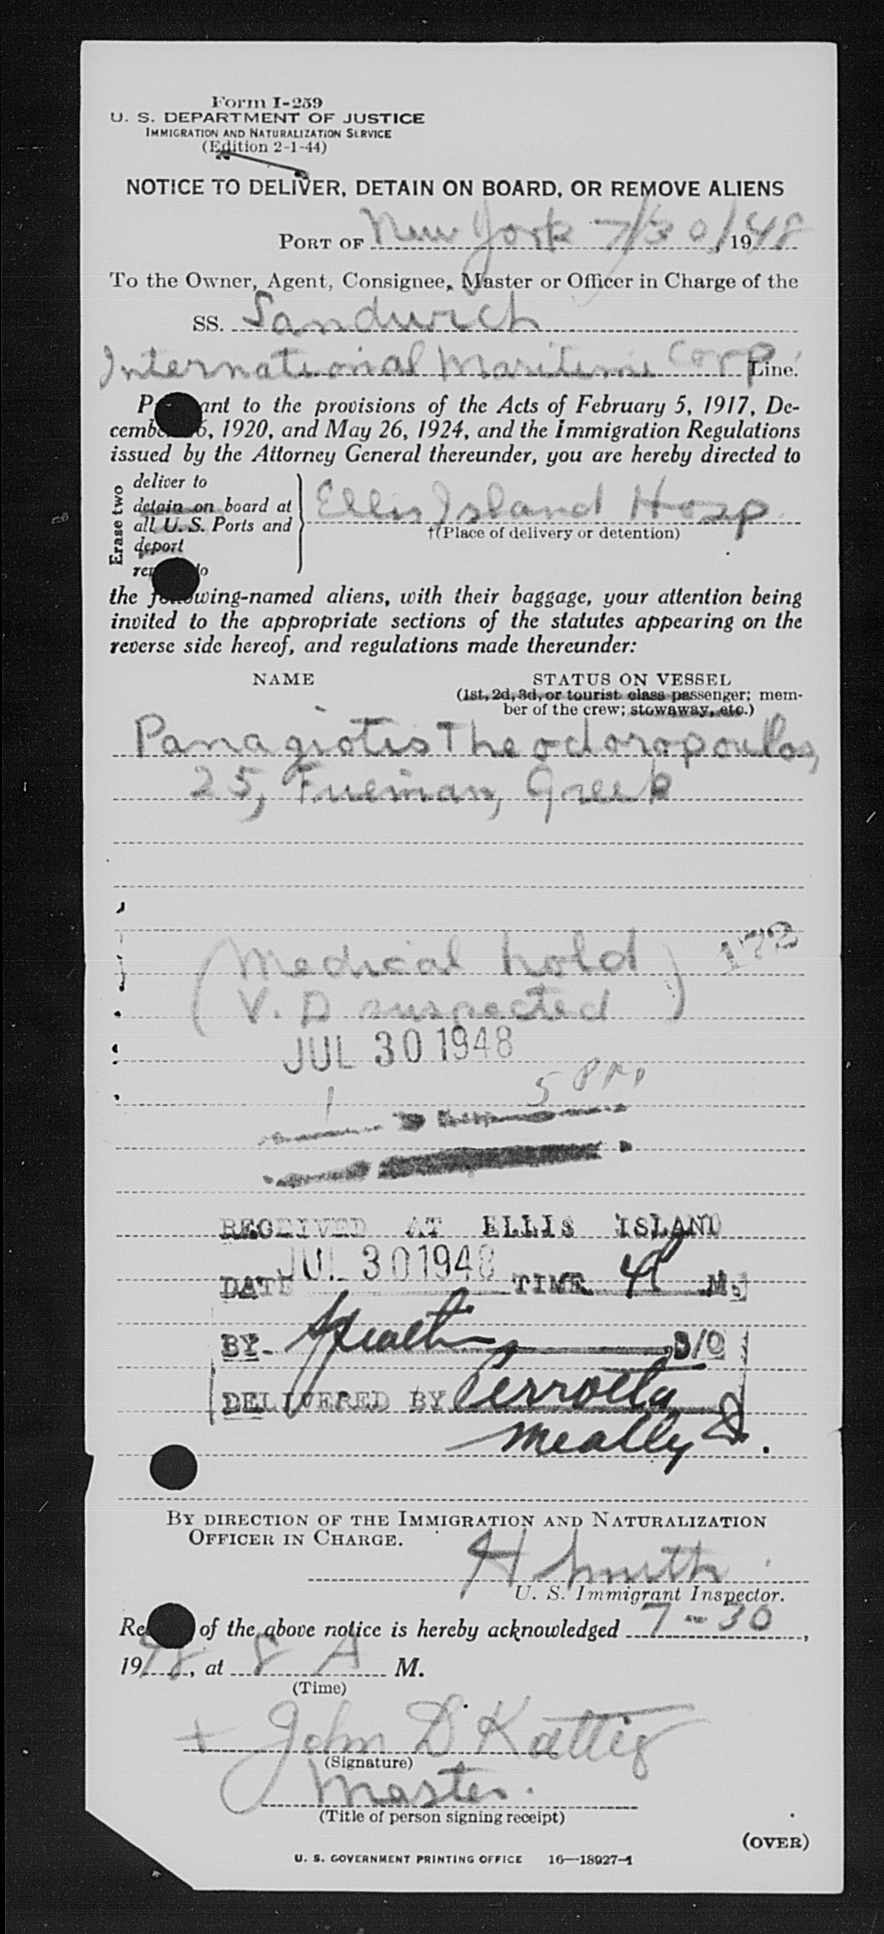 Form I-259
U. S. DEPARTMENT OF JUSTICE
IMMIGRATION AND NATURALIZATION SERVICE
(Edition 2-1-44)
NOTICE TO DELIVER, DETAIN ON BOARD, OR REMOVE ALIENS
PORT OF New York 7/30/, 1948
To the Owner, Agent, Consignee, Master or Officer in Charge of the
SS. Sandwich
International Maritime Corp. Line.
P ant to the provisions of the Acts of February 5, 1917, De-
cemb 6, 1920, and May 26, 1924, and the Immigration Regulations
issued by the Attorney General thereunder, you are hereby directed to
Erase two
deliver to
detain on board at
all U. S. Ports and
deport
re o
Ellis Island Hosp.
†(Place of delivery or detention)
the following-named aliens, with their baggage, your attention being
invited to the appropriate sections of the statutes appearing on the
reverse side hereof, and regulations made thereunder:
NAME STATUS ON VESSEL
(1st, 2d, 3d, or tourist class passenger; mem-
ber of the crew; stowaway, etc.)
Panagiotis Theodoropoullos,
25, Fireman, Greek
172
(Medical hold
V. D suspected)
JUL 30 1948
1 5 PM
RECEIVED AT ELLIS ISLAND
DATE JUL 30 1948 TIME M.
BY
DELIVERED BY Perrotta
Meally
BY DIRECTION OF THE IMMIGRATION AND NATURALIZATION
OFFICER IN CHARGE.
H Smith
U. S. Immigrant Inspector.
Re of the above notice is hereby acknowledged 7-30,
1948, at 8 A M.
(Time)
+ John D Kattig
(Signature)
Master.
(Title of person signing receipt)
(OVER)
U. S. GOVERNMENT PRINTING OFFICE 16—18927-1